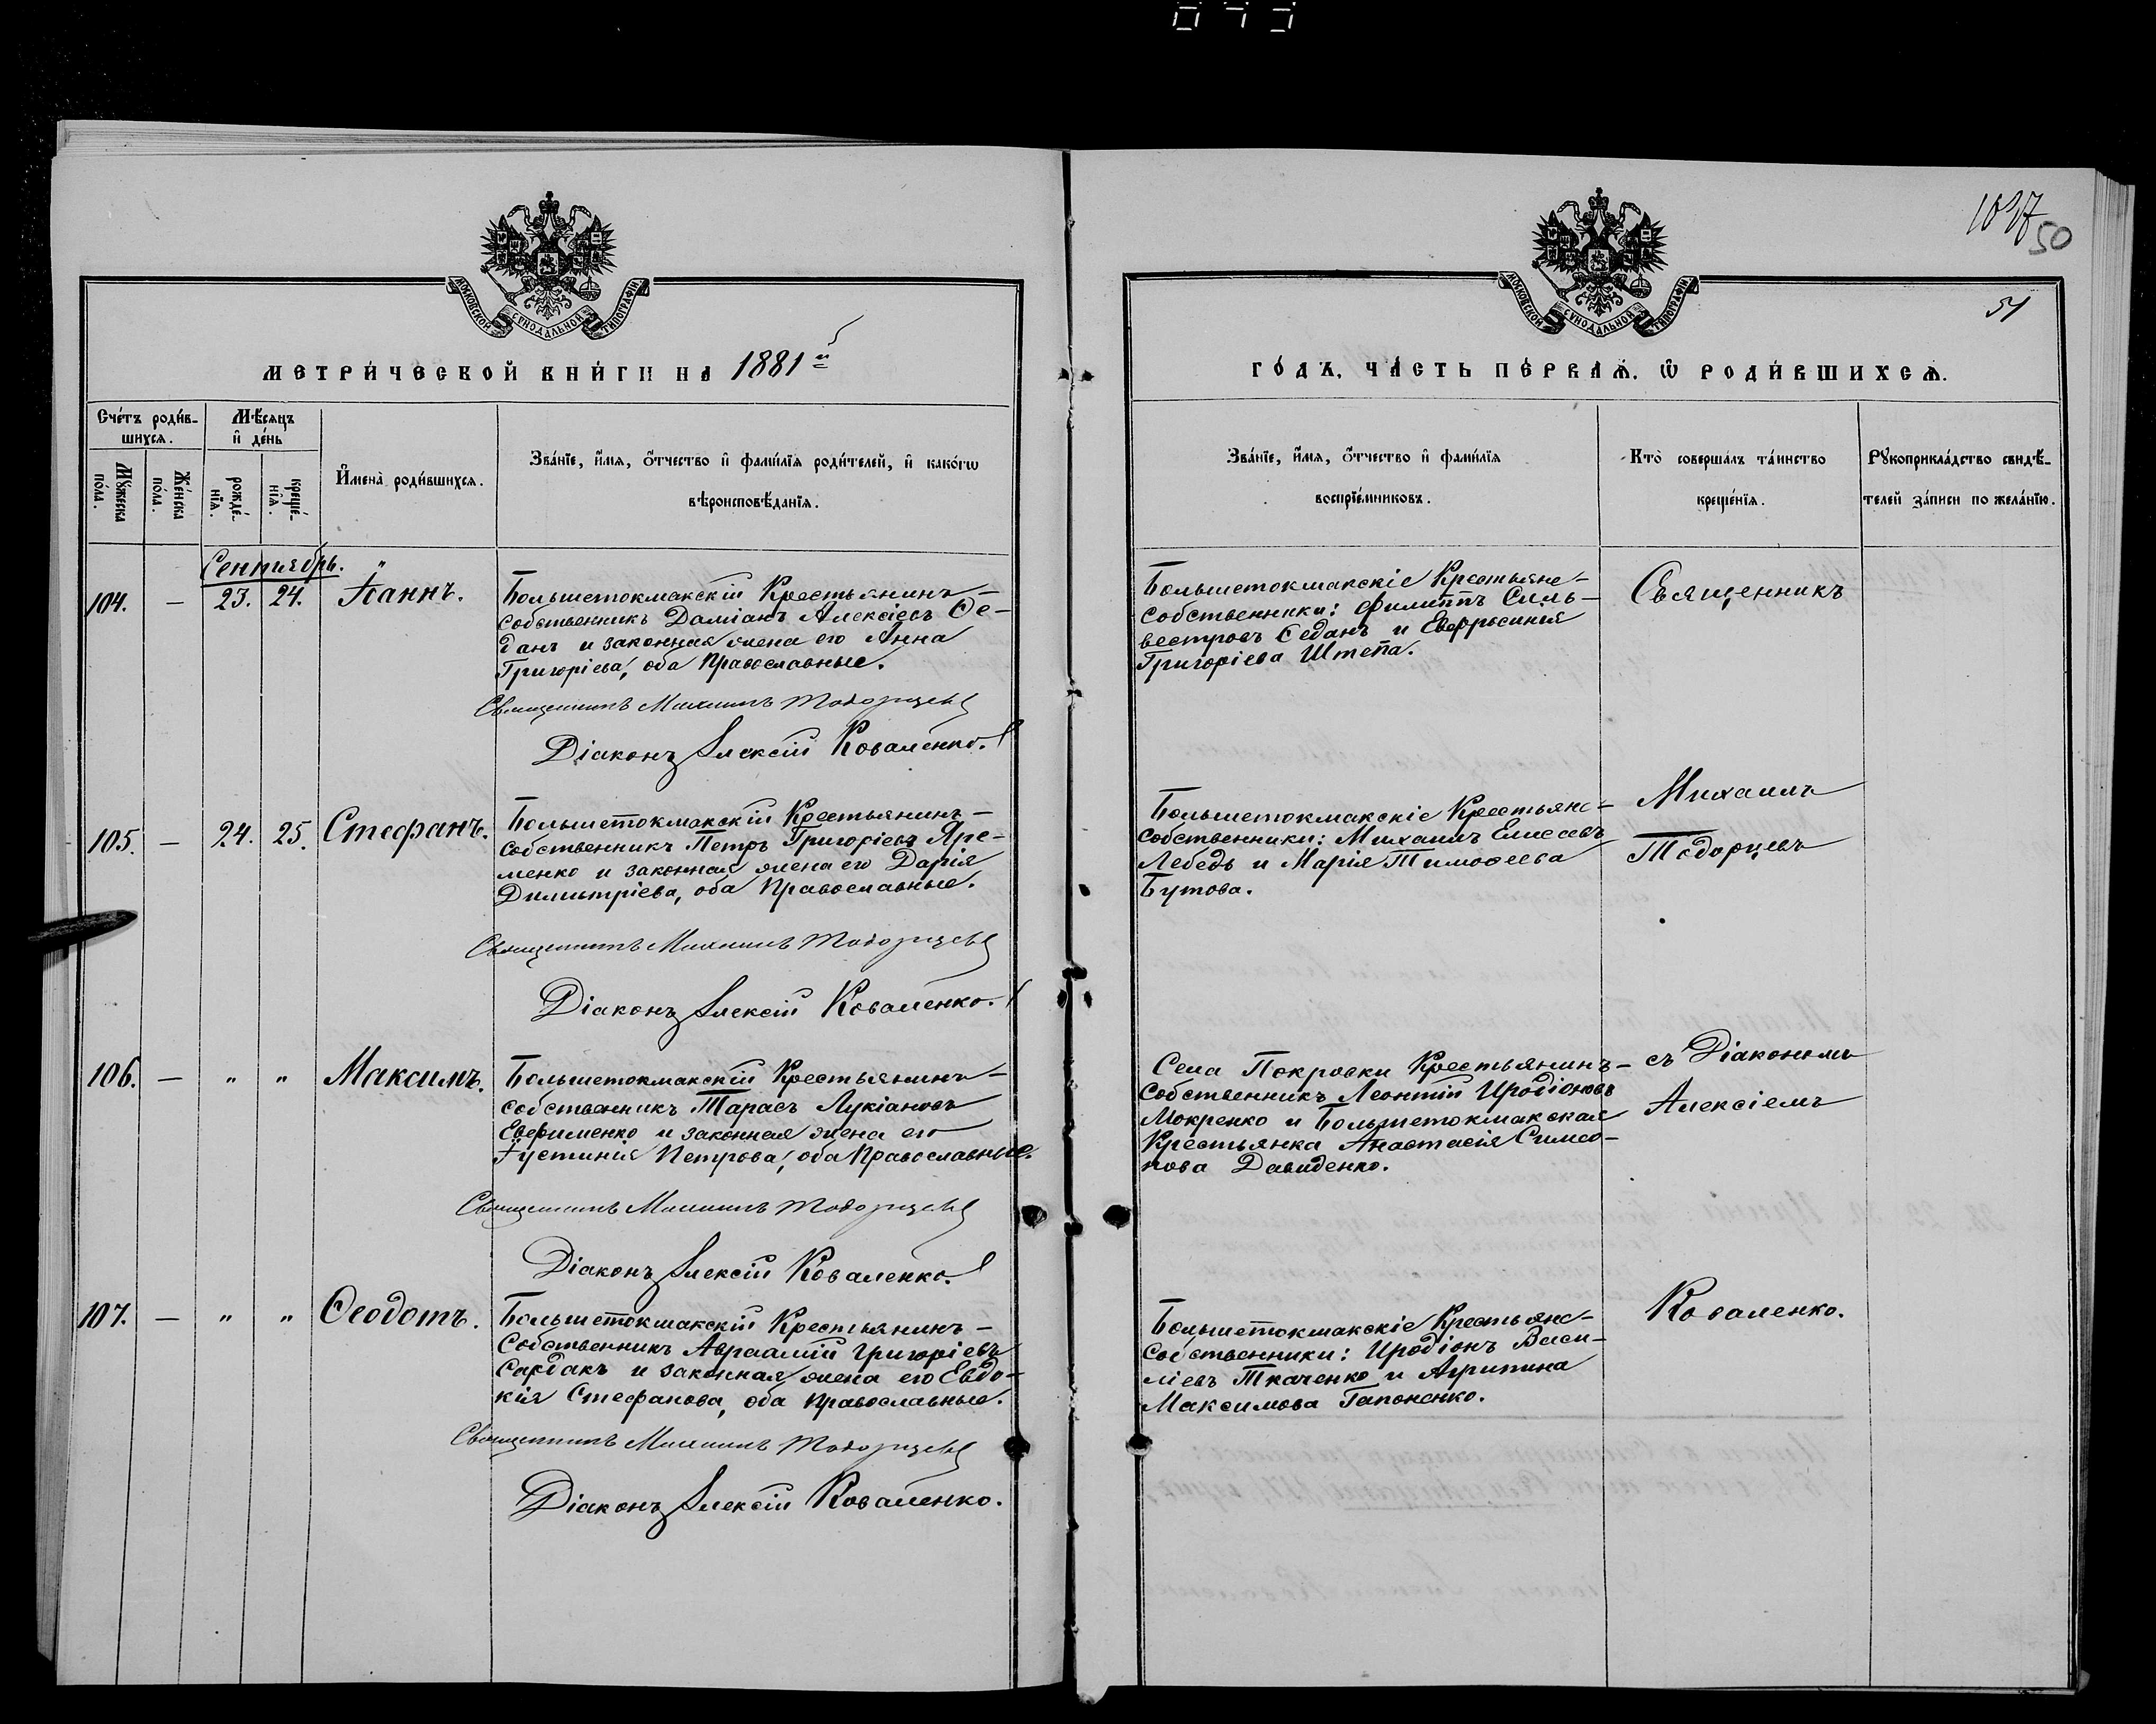 1037
50
МОСКОВСКОЙ СѴНОДАЛЬНОЙ ТИПОГРАФІИ
МОСКОВСКОЙ СѴНОДАЛЬНОЙ ТИПОГРАФІИ
51
МЕТРИ́ЧЕСКОЙ КНИ́ГИ НА 1881й
ГО́ДЪ, ЧА́СТЬ ПЕ́РВАѦ, Ѡ РОДИ́ВШИХСѦ.
Сче́тъ роди́в-
шихсѧ.
Мѣ́сѧцъ
и҆ де́нь
Мꙋ́жеска по́ла.
Же́нска по́ла.
рожде́нїѧ.
креще́нїѧ.
И҆мена̀ роди́вшихсѧ.
Зва́нїе, и҆́мѧ, ѻ҆́тчество и҆ фами́лїѧ роди́телей, и҆ како́гѡ
вѣроисповѣ́данїѧ.
Зва́нїе, и҆́мѧ, ѻ҆́тчество и҆ фами́лїѧ
воспрїе́мниковъ.
Кто̀ соверша́лъ та́инство
креще́нїѧ.
Рꙋкоприкла́дство свидѣ́-
телей за́писи по жела́нїю.
Сентябрь.
104. — 23. 24. Іоаннъ.
Большетокмакскій Крестьянинъ-
собственникъ Даміанъ Алексіевъ Ѳе-
данъ и законная жена его Анна
Григоріева, оба православные.
Священникъ Михаилъ Тодорцевъ
Діаконъ Алексій Коваленко.
Большетокмакскіе Крестьяне-
собственники: Филиппъ Силь-
вестровъ Седанъ и Евфросинія
Григоріева Штепа.
Священникъ
105. — 24. 25. Стефанъ.
Большетокмакскій Крестьянинъ-
собственникъ Петръ Григоріевъ Яре-
менко и законная жена его Дарія
Димитріева, оба православные.
Священникъ Михаилъ Тодорцевъ
Діаконъ Алексій Коваленко.
Большетокмакскіе Крестьяне-
собственники: Михаилъ Елисеевъ
Лебедь и Марія Тимоѳеева
Бутова.
Михаилъ
Тодорцевъ
106. — " " Максимъ.
Большетокмакскій Крестьянинъ-
собственникъ Тарасъ Лукіановъ
Евфименко и законная жена его
Іустинія Петрова, оба православные.
Священникъ Михаилъ Тодорцевъ
Діаконъ Алексій Коваленко.
Села Покровки Крестьянинъ-
собственникъ Леонтій Иродіоновъ
Мокренко и Большетокмакская
Крестьянка Анастасія Симео-
нова Давиденко.
съ Діакономъ
Алексіемъ
107. — " " Ѳеодотъ.
Большетокмакскій Крестьянинъ-
собственникъ Авраамій Григоріевъ
Сардакъ и законная жена его Евдо-
кія Стефанова, оба православные.
Священникъ Михаилъ Тодорцевъ
Діаконъ Алексій Коваленко.
Большетокмакскіе Крестьяне-
собственники: Иродіонъ Васи-
ліевъ Ткаченко и Агрипина
Максимова Гапоненко.
Коваленко.